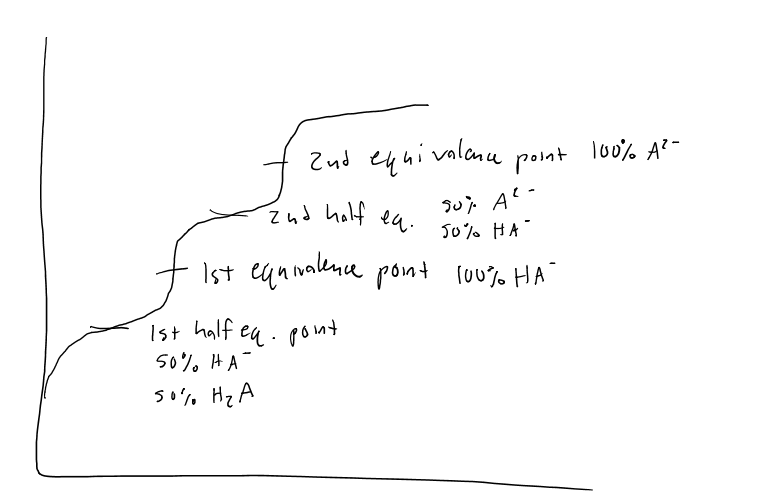 2nd equivalence point 100% A²⁻
2nd half eq. 50% A²⁻
50% HA⁻
1st equivalence point 100% HA⁻
1st half eq. point
50% HA⁻
50% H₂A